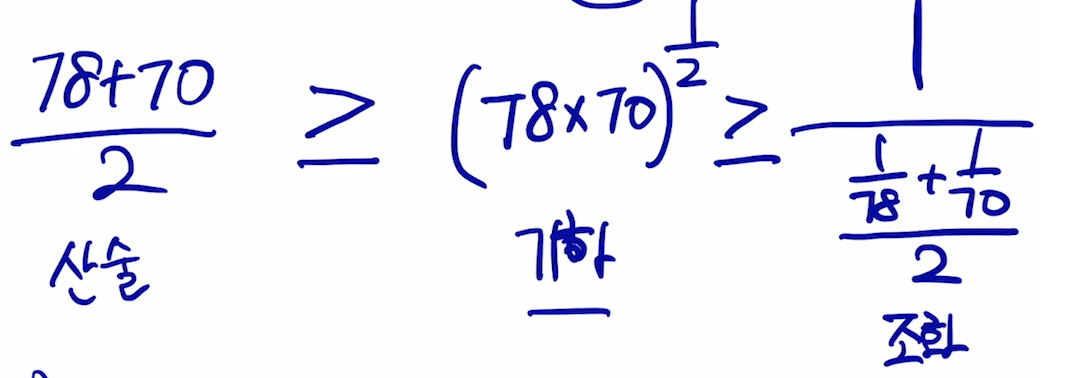 (78+70)/2 ≥ (78×70)^(1/2) ≥ 1/((1/78+1/70)/2)
산술 기하 조화